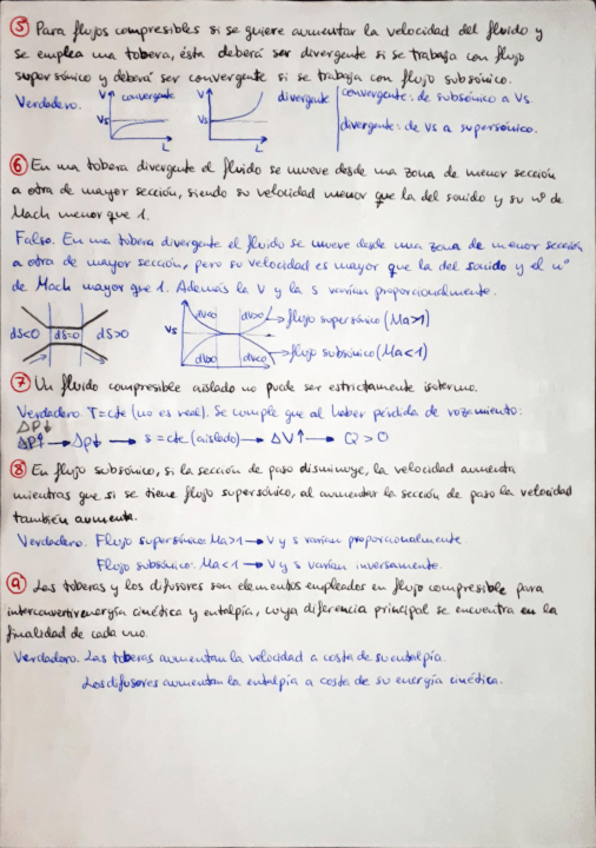 ⑤ Para flujos compresibles si se quiere aumentar la velocidad del fluido y
se emplea una tobera, ésta deberá ser divergente si se trabaja con flujo
supersónico y deberá ser convergente si se trabaja con flujo subsónico.
Verdadero. V convergente Vs L V Vs L divergente convergente: de subsónico a Vs.
divergente: de Vs a supersónico.
⑥ En una tobera divergente el fluido se mueve desde una zona de menor sección
a otra de mayor sección, siendo su velocidad menor que la del sonido y su nº de
Mach menor que 1.
Falso. En una tobera divergente el fluido se mueve desde una zona de menor sección
a otra de mayor sección, pero su velocidad es mayor que la del sonido y el nº
de Mach mayor que 1. Además la V y la S varían proporcionalmente.
dS<0 dS=0 dS>0 Vs dV<0 dV>0 flujo supersónico (Ma>1)
dV>0 dV<0 flujo subsónico (Ma<1)
⑦ Un fluido compresible aislado no puede ser estrictamente isotermo.
Verdadero. T=cte (no es real). Se cumple que al haber pérdida de rozamiento:
ΔP↓
ΔP↑ → Δρ↓ → s = cte (aislado) → ΔV↑ → Q > 0
⑧ En flujo subsónico, si la sección de paso disminuye, la velocidad aumenta
mientras que si se tiene flujo supersónico, al aumentar la sección de paso la velocidad
también aumenta.
Verdadero. Flujo supersónico: Ma>1 → V y s varían proporcionalmente.
Flujo subsónico: Ma<1 → V y s varían inversamente.
⑨ Las toberas y los difusores son elementos empleados en flujo compresible para
interconvertir energía cinética y entalpía, cuya diferencia principal se encuentra en la
finalidad de cada uno.
Verdadero. Las toberas aumentan la velocidad a costa de su entalpía.
Los difusores aumentan la entalpía a costa de su energía cinética.